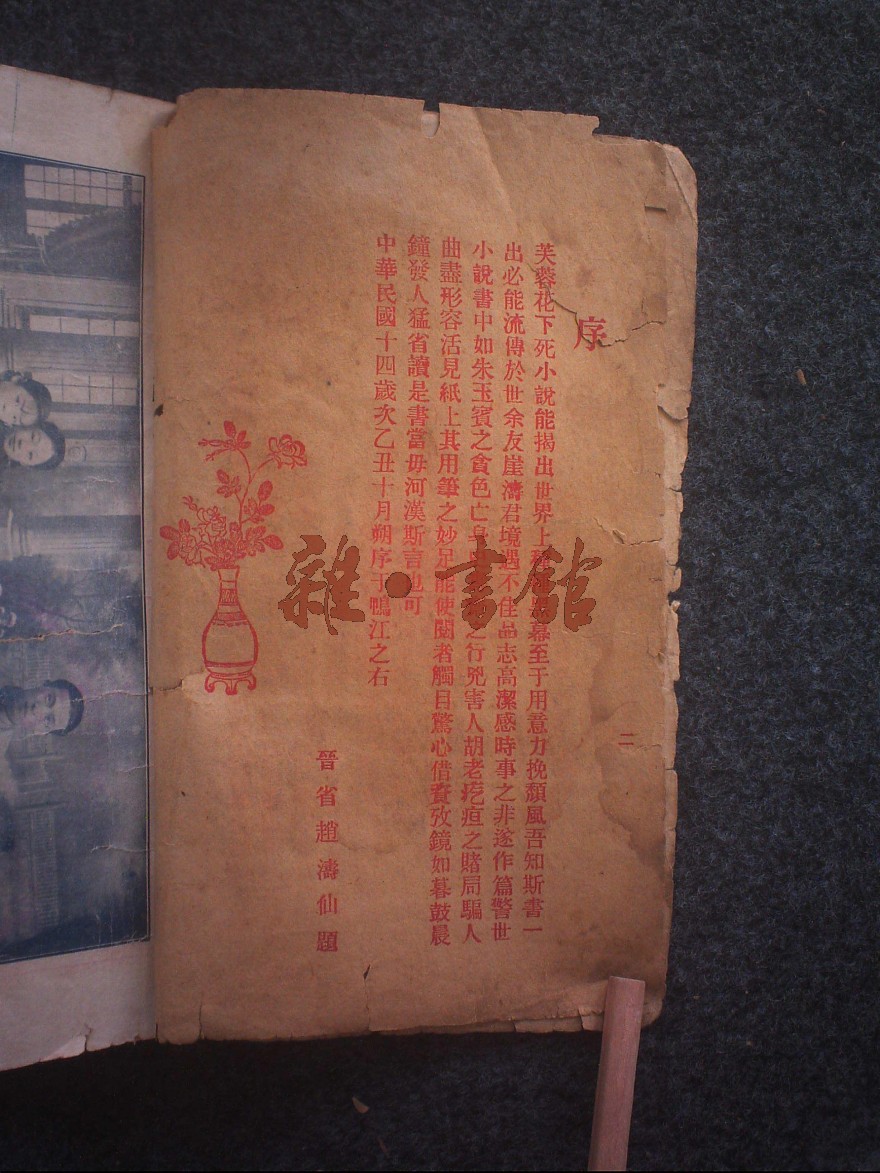 序
二
芙蓉花下死小說能揭出世界上種種黑幕至于用意力挽頹風吾知斯書一
出必能流傳於世余友崖濤君境遇不佳品志高潔感時事之非遂作篇警世
小說書中如朱玉賓之貪色亡身 之行兇害人胡老疙疸之賭局騙人
曲盡形容活見紙上其用筆之妙足能使閱者觸目驚心借資攷鏡如暮鼓晨
鐘發人猛省讀是書當毋河漢斯言也可
中華民國十四歲次乙丑十月朔序于鴨江之右
晉省趙濤仙題
雜·書館